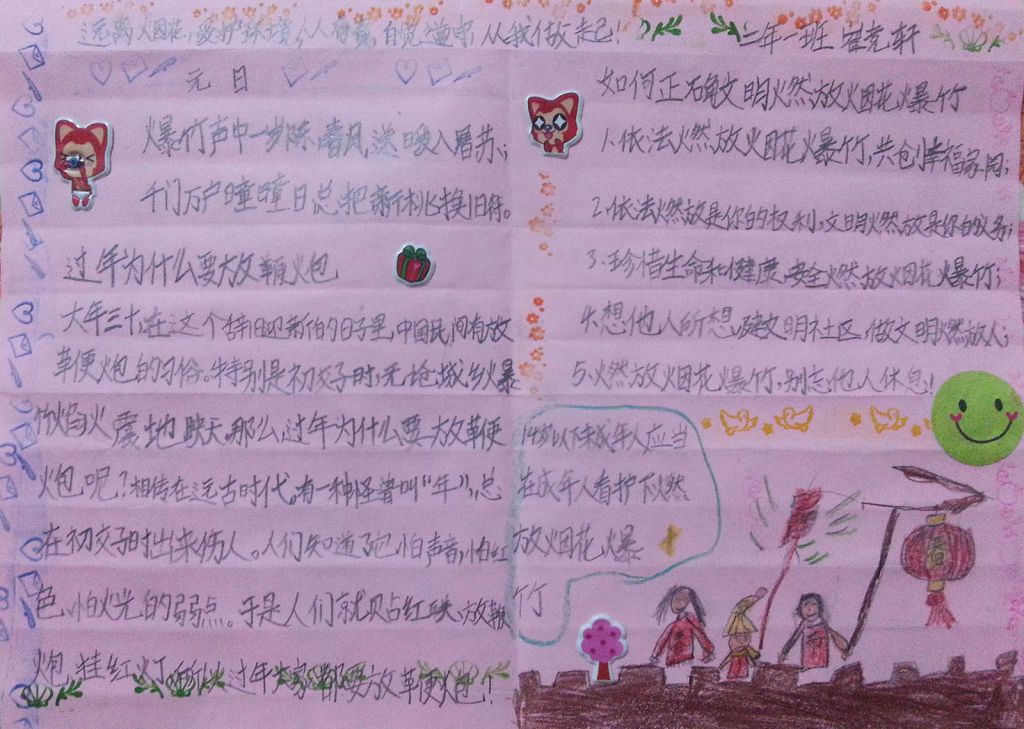 远离烟花,爱护环境,人人有责,自觉遵守,从我做起!
二年一班 崔竞轩
元日
爆竹声中一岁除,春风送暖入屠苏;
千门万户曈曈日,总把新桃换旧符。
过年为什么要放鞭火包
大年三十,在这个辞旧迎新的日子里,中国民间有放
革便火包的习俗。特别是初交子时,无论城乡火暴
竹焰火震地映天,那么过年为什么要放革便
火包呢?相传在远古时代,有一种怪兽叫“年”,总
在初交子时出来伤人。人们知道了它怕声音,怕红
色,怕火光的弱点。于是人们就贝占红联、放鞭
炮、挂红灯,所以过年大家都要放革便火包!
如何正确文明火然放火因花火暴竹
1.依法火然放火因花火暴竹,共创幸福家园;
2.依法燃放是你的权利,文明燃放是你的义务;
3.珍惜生命和健康,安全火然放火因花火暴竹;
4.想他人所想,建文明社区,做文明燃放人;
5.火然放火因花火暴竹,别忘他人休息!
14岁以下未成年人应当
在成年人看护下火然
放火因花火暴
竹
春